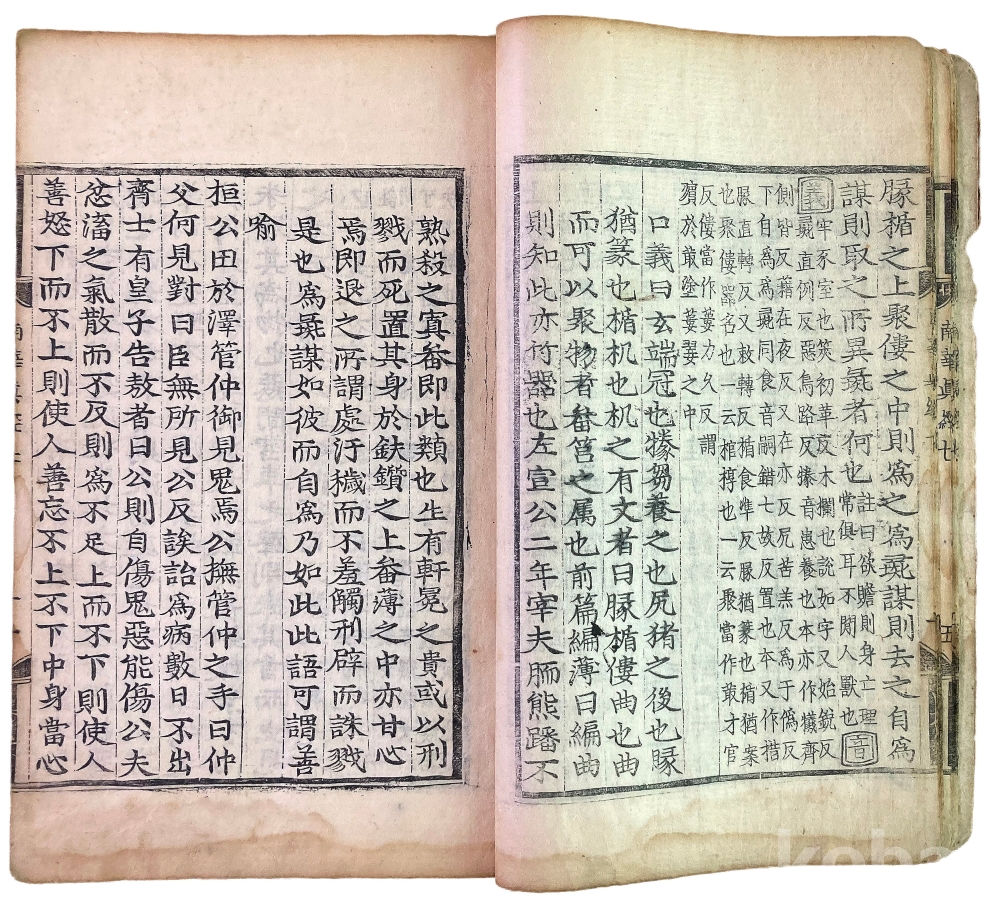 腞楯之上聚僂之中則爲之爲彘謀則去之自爲
謀則取之所異彘者何也註曰欲贍則身亡理
常俱耳不間人獸也音
義牢豕室也筴初革反木欄也說如字又始銳反
彘直例反惡烏路反㹖音患養也本亦作犧齊
側皆反藉在夜反又在亦反尻苦羔反爲于僞反
下自爲爲彘同食音嗣錯七故反置也本又作措
腞直轉反又敕轉反楯食準反腞猶篆也楯猶案
也聚僂器名也一云棺槨也一云聚當作菆才官
反僂當作蔞力久反謂
殯於菆塗蔞翣之中
口義曰玄端冠也㹖芻養之也尻猪之後也腞
猶篆也楯机也机之有文者曰腞楯僂曲也曲
而可以聚物者畚筥之属也前篇編薄曰編曲
則知此亦竹器也左宣公二年宰夫胹熊蹯不
南華眞經七
十五
熟殺之寘畚即此類也生有軒冕之貴或以刑
戮而死置其身於鈇鑕之上畚薄之中亦甘心
焉即退之所謂處汙穢而不羞觸刑辟而誅戮
是也爲彘謀如彼而自爲乃如此此語可謂善
喻
桓公田於澤管仲御見鬼焉公撫管仲之手曰仲
父何見對曰臣無所見公反誒詒爲病數日不出
齊士有皇子告敖者曰公則自傷鬼惡能傷公夫
忿滀之氣散而不反則爲不足上而不下則使人
善怒下而不上則使人善忘不上不下中身當心